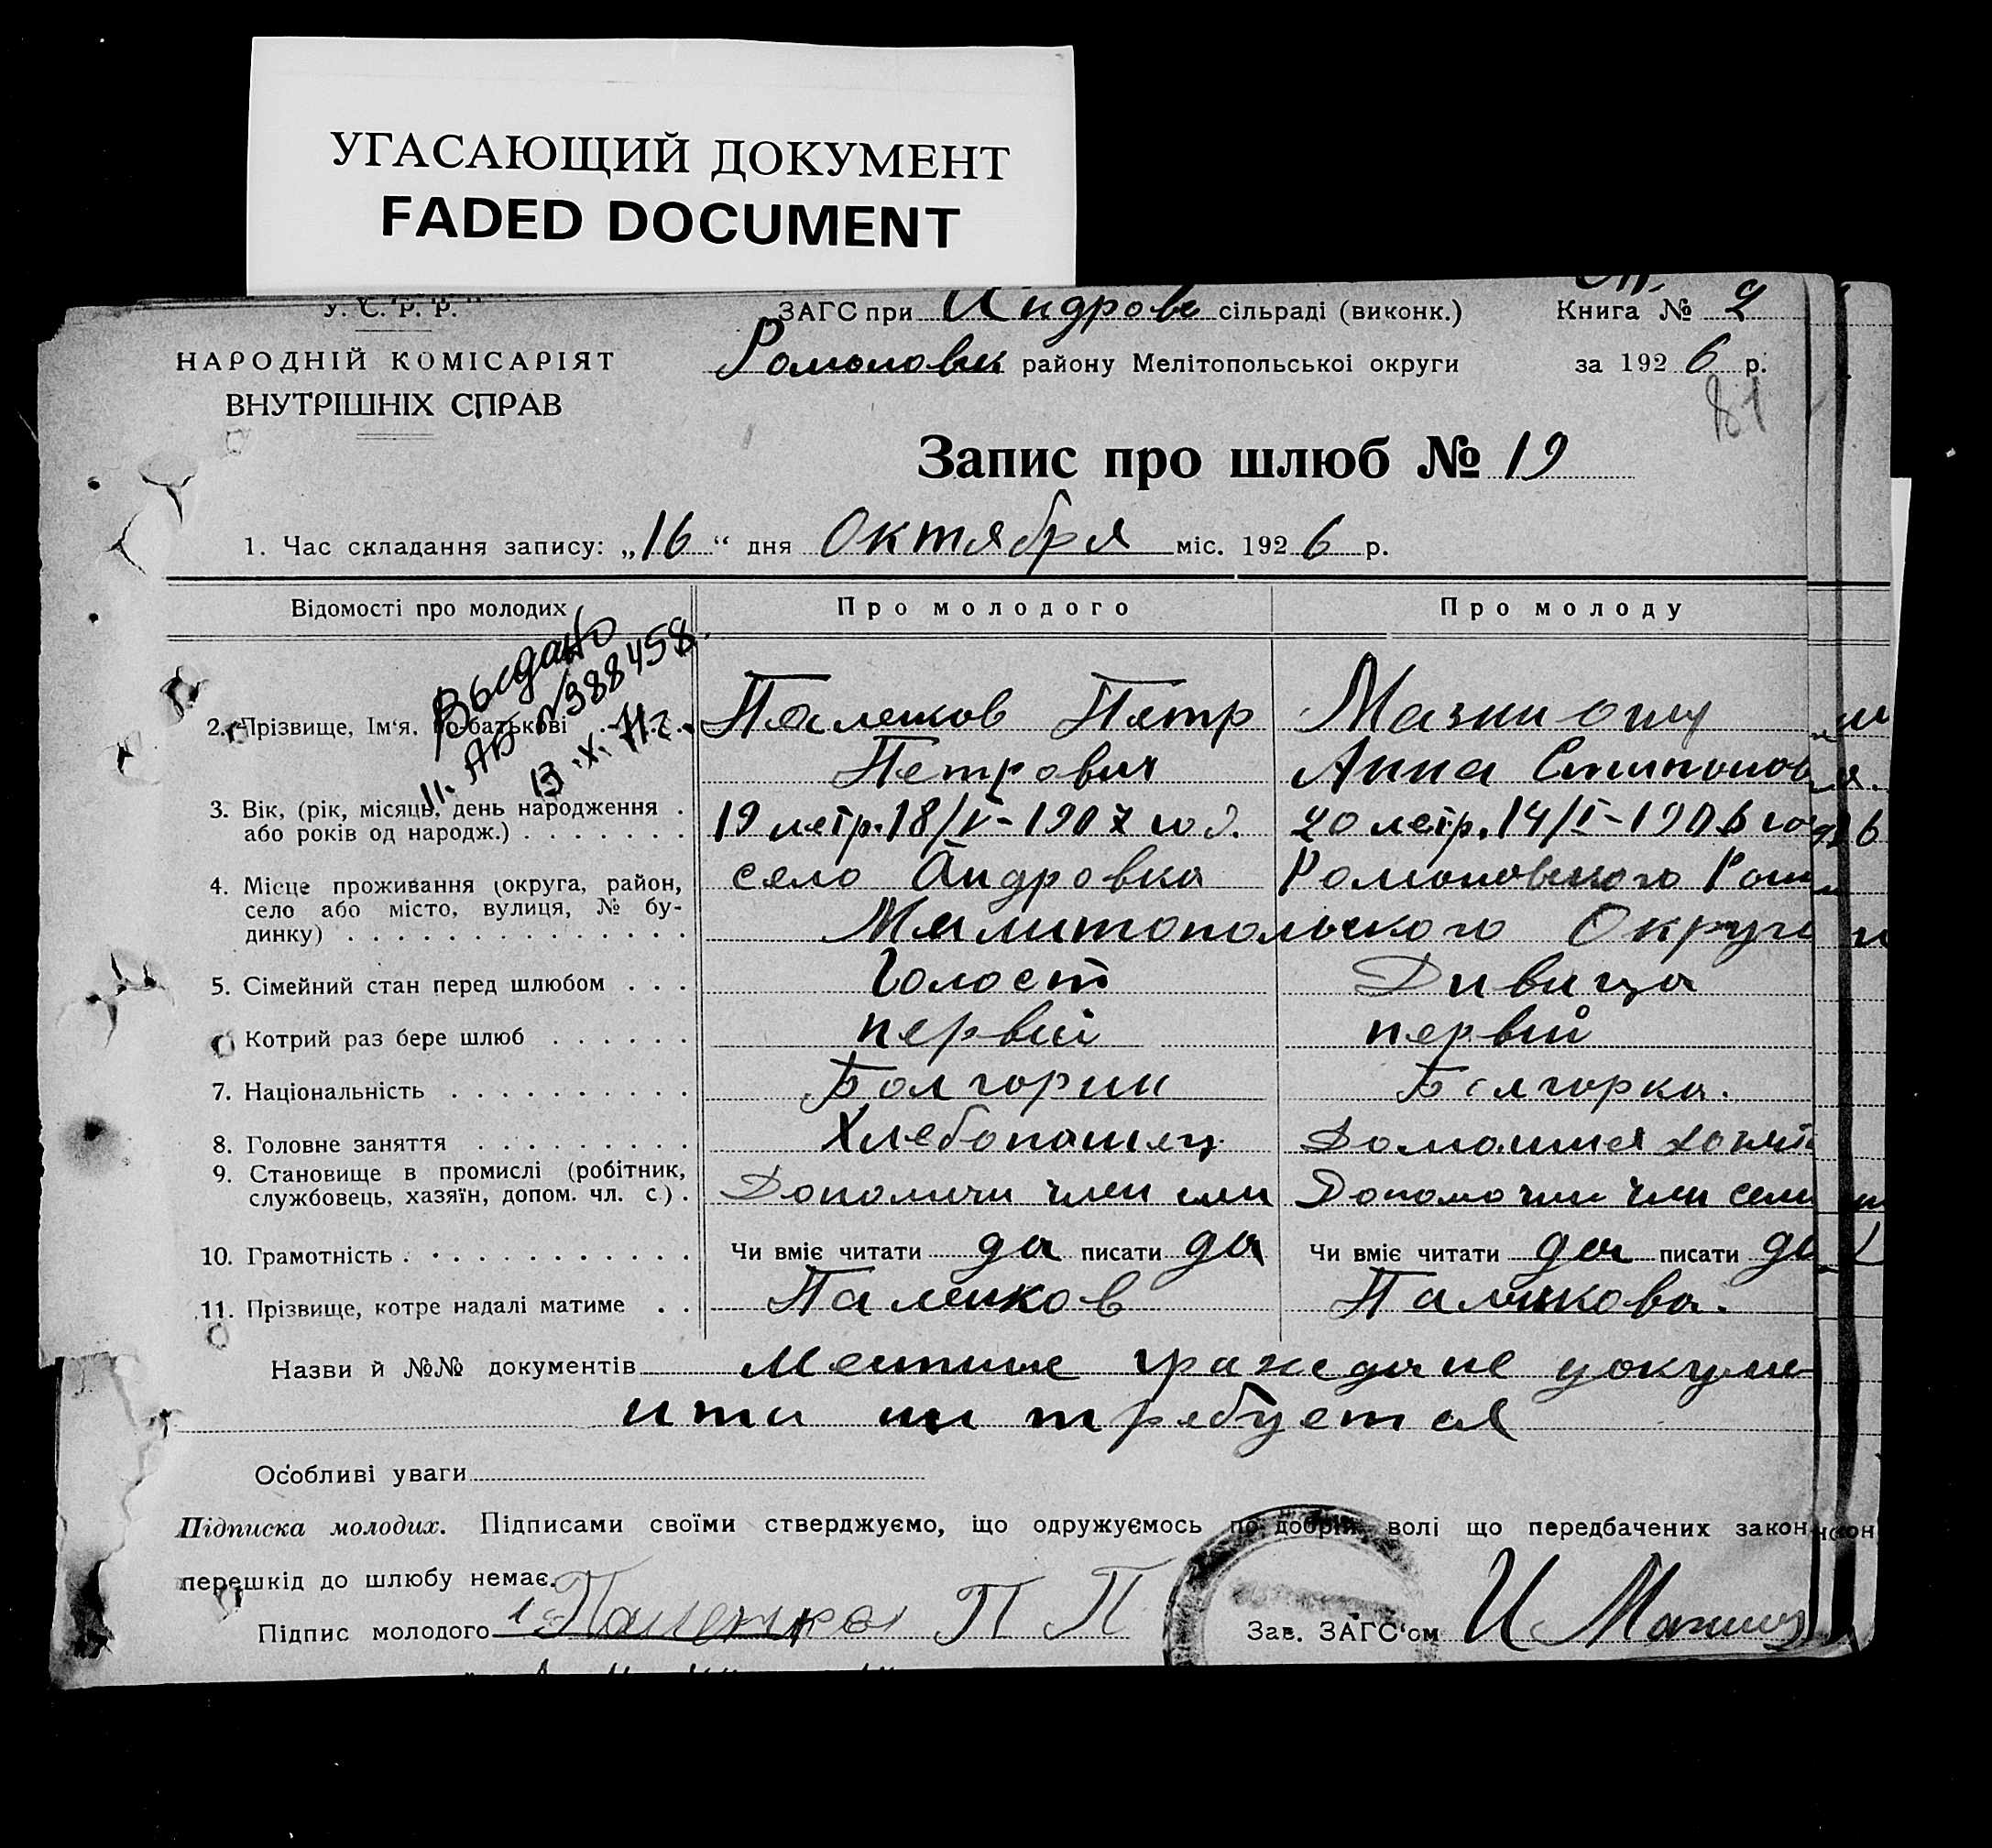 УГАСАЮЩИЙ ДОКУМЕНТ
FADED DOCUMENT
У. С. Р. Р.
ЗАГС при Андров сільраді (виконк.)
Книга № 2
НАРОДНІЙ КОМІСАРІЯТ
Романовск району Мелітопольської округи
за 1926 р.
ВНУТРІШНІХ СПРАВ
81
Запис про шлюб № 19
1. Час складання запису: „16“ дня Октября міс. 1926 р.
Відомості про молодих
Про молодого
Про молоду
Выдано
II. АБ №388458
13.X.
2. Прізвище, Ім‘я, по-батькові
Палежов Петр
Петрович
Анна
3. Вік, (рік, місяць, день народження .
або років од народж.) . . . . . . .
19 летр. 18/V-1907 год.
20 летр. 14/I-1906 год
4. Місце проживання (округа, район,
село або місто, вулиця, № бу-
динку) . . . . . . . . . . . . . .
село Андровка Романовского
Мелитопольского Округи
5. Сімейний стан перед шлюбом . . .
Голост
Дивица
Котрий раз бере шлюб . . . . . .
первий
первий
7. Національність . . . . . . . . . .
Болгорин
Болгорка.
8. Головне заняття . . . . . . . . .
Хлебопашец
Домашня
9. Становище в промислі (робітник,
службовець, хазяїн, допом. чл. с.) .
член
Допомочни член семи
10. Грамотність . . . . . . . . . . . .
Чи вміє читати да писати да
Чи вміє читати да писати да
11. Прізвище, котре надалі матиме . .
Назви й №№ документів Местние граждане докуме-
нти ни требуется
Особливі уваги
Підписка молодих. Підписами своїми стверджуємо, що одружуємось по добрій волі що передбачених закон
перешкід до шлюбу немає.
Підпис молодого П П
Зав. ЗАГС‘ом И